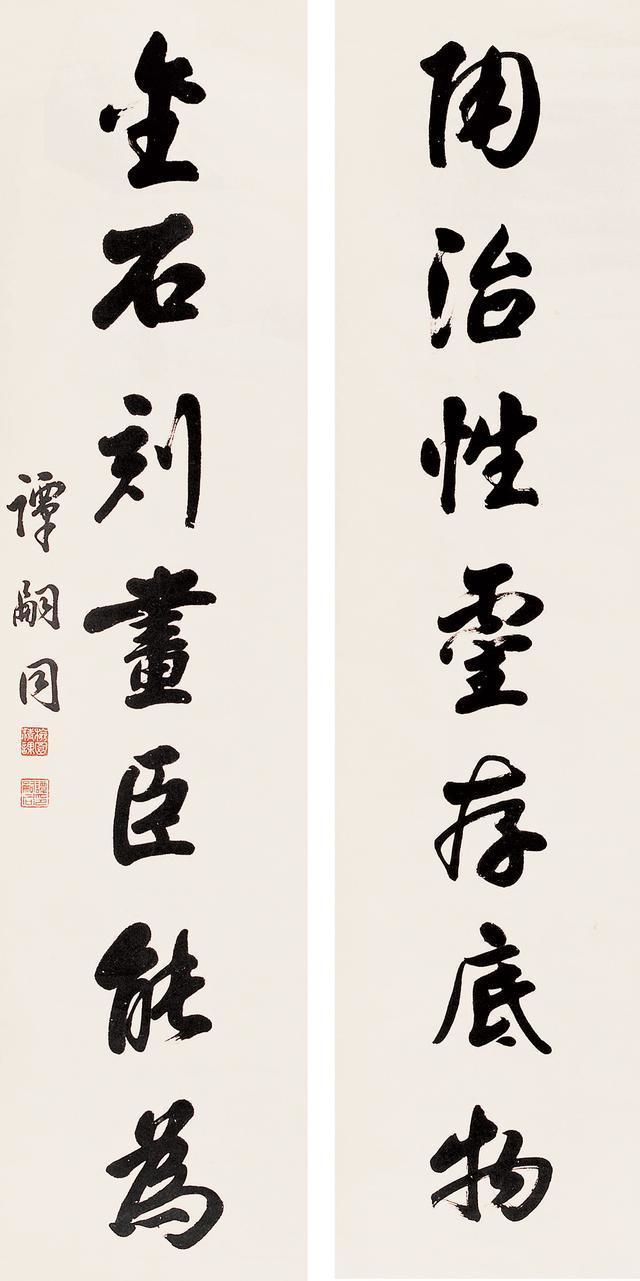 陶治性靈存底物
金石刻畫臣能為
譚嗣同